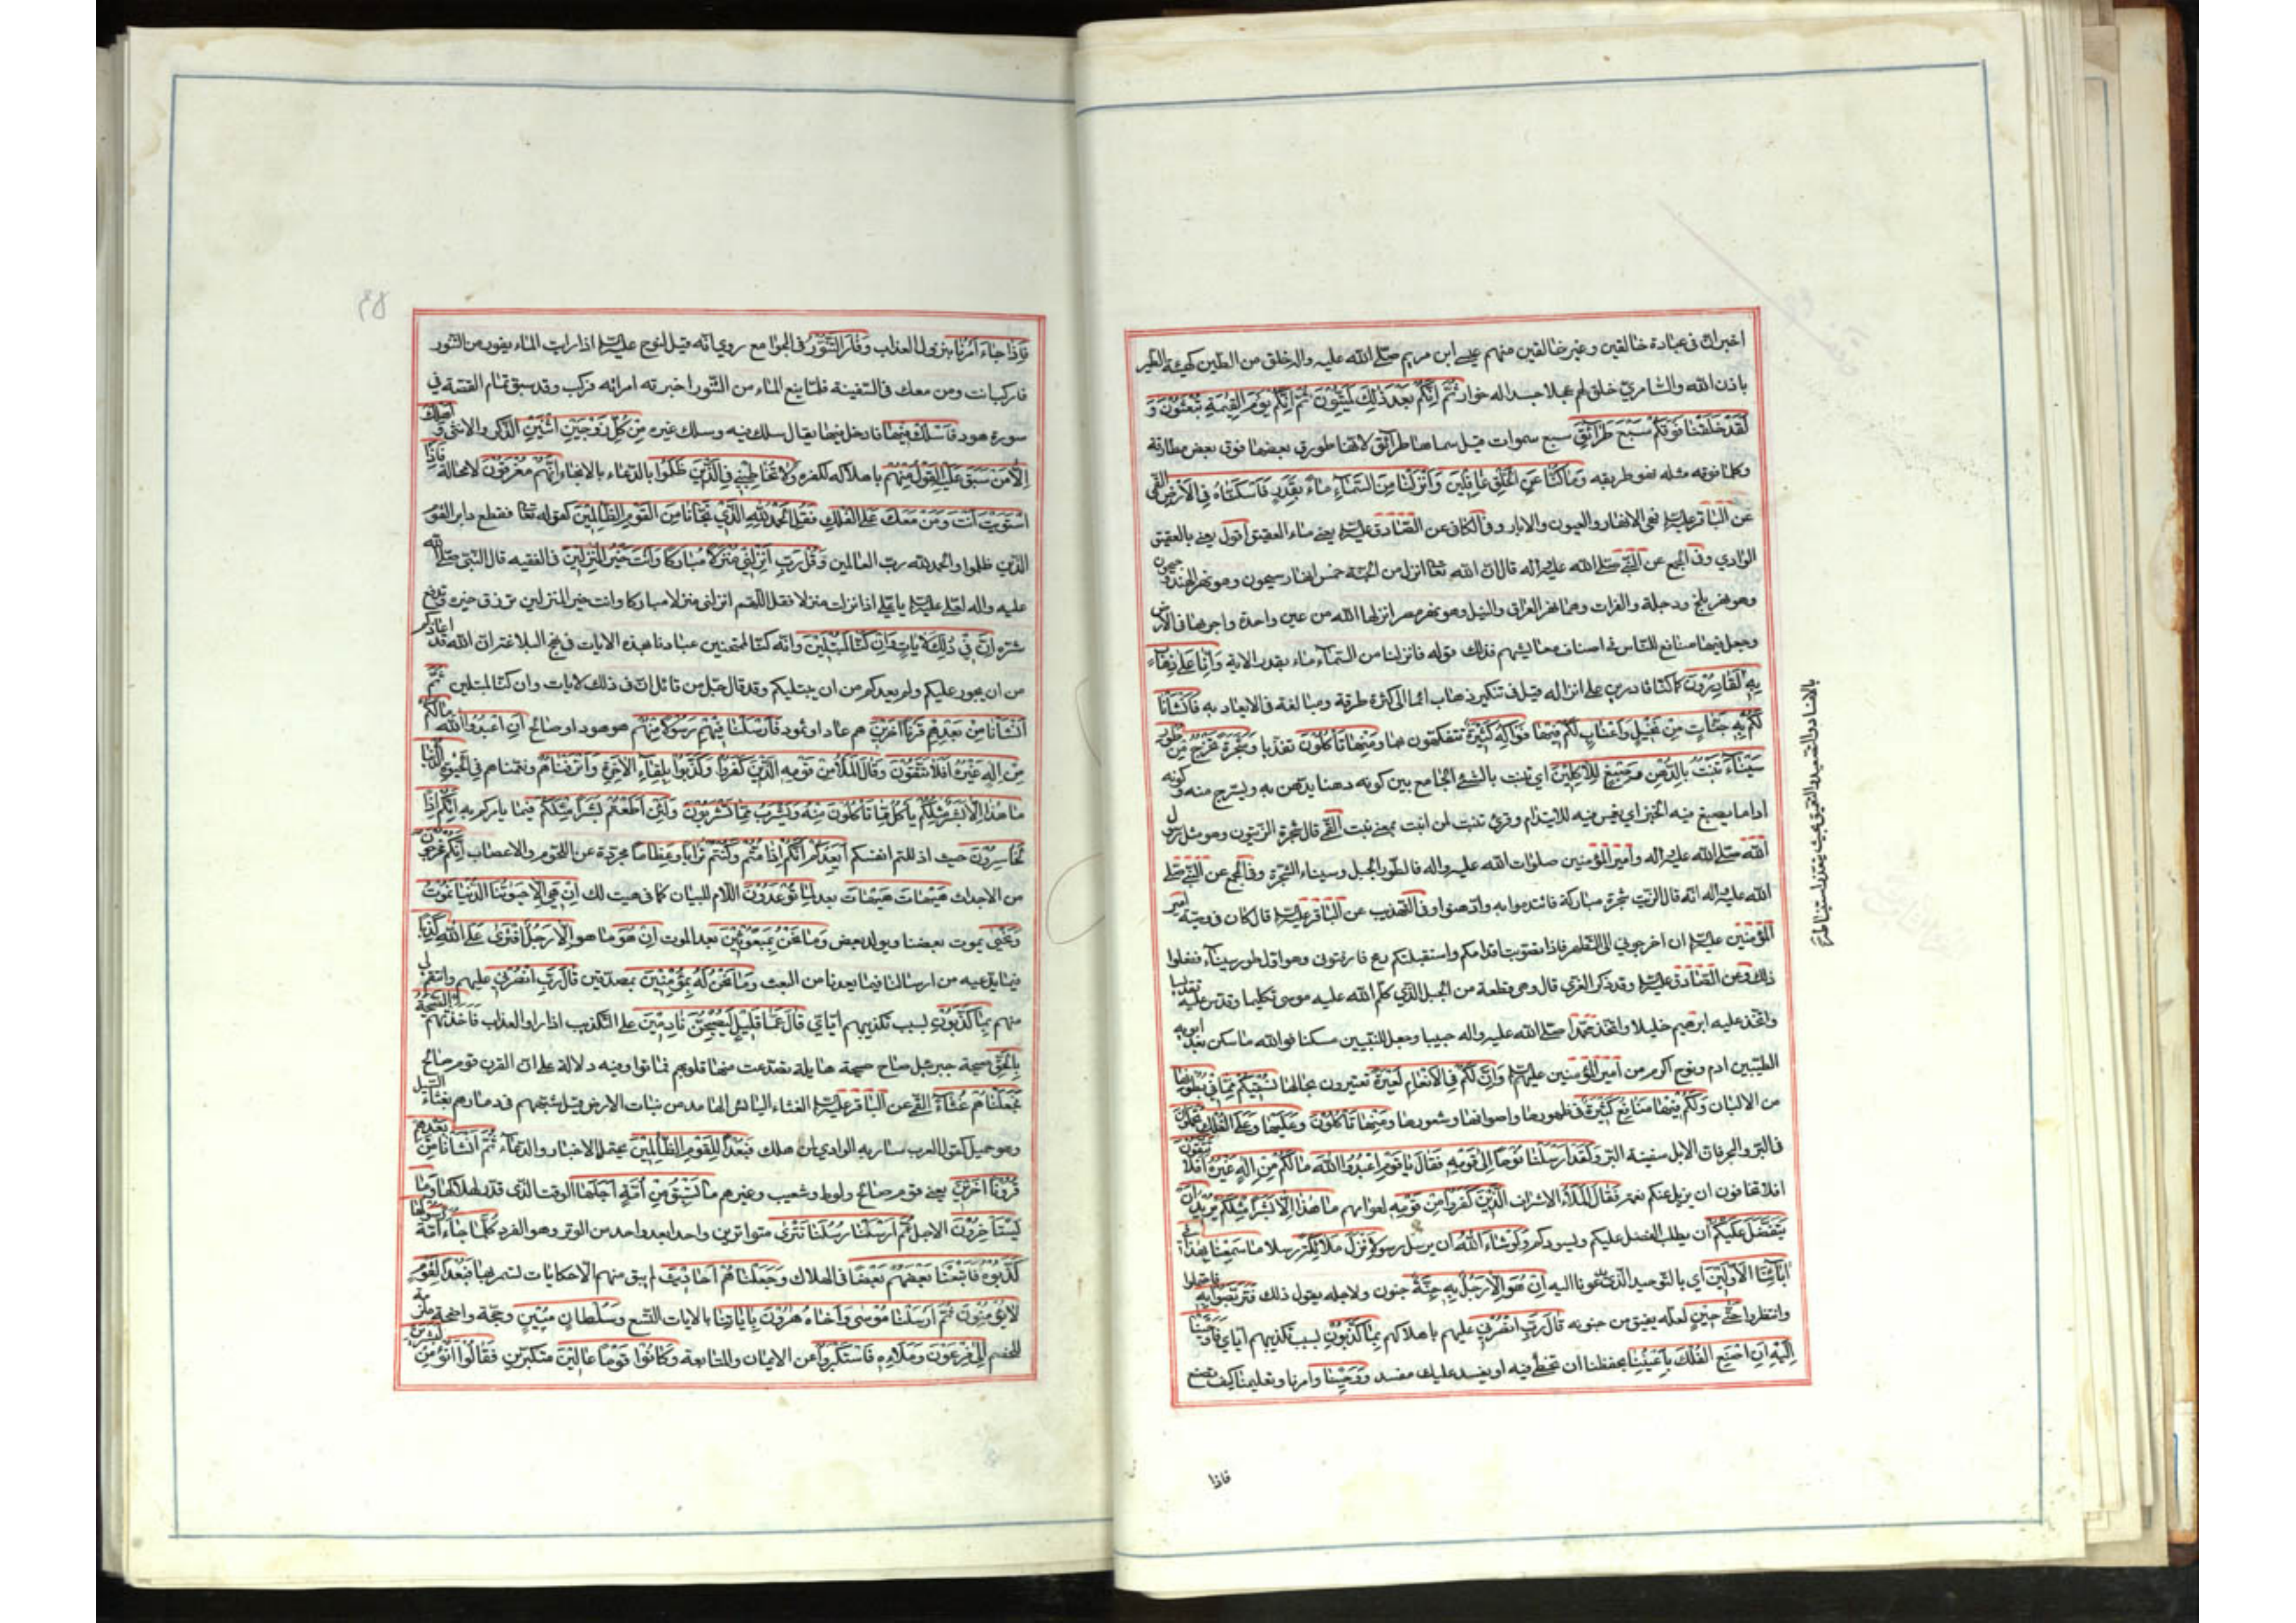 اخبرانّ في عباده خالقين وغير خالقين منهم عيسى ابن مريم صلّى الله عليه واله خلق من الطين كهيئة الطير
باذن الله والسّامريّ خلق لهم عجلا جسدا له خوار ثُمَّ اِنَّكُمْ بَعْدَ ذٰلِكَ لَمَيِّتُونَ ثُمَّ اِنَّكُمْ يَوْمَ الْقِيٰمَةِ تُبْعَثُونَ وَ
لَقَدْ خَلَقْنا فَوْقَكُمْ سَبْعَ طَرٰآئِقَ سبع سموات قيل سماها طرائق لانّها طورق بعضها فوق بعض مطارقة
وكلما فوقه مثله فهو طريقه وَمٰا كُنّٰا عَنِ الْخَلْقِ غٰافِلينَ وَاَنْزَلْنٰا مِنَ السَّمٰآءِ مٰآءً بِقَدَرٍ فَاَسْكَنّٰاهُ فِي الْاَرْضِ القمّي
عن الباقر عليه السلام فهي الانهار والعيون والابار وفي الكافي عن الصّادق عليه السلام يعني ماء العقيق اقول يعني بالعقيق
الوادي وفي المجمع عن النّبيّ صلّى الله عليه واله قال انّ الله تعالى انزل من الجنّة خمس انهار سيحون وهو نهر الهند وجيحون
وهو نهر بلخ ودجلة والفرات وهما نهر العراق والنيل وهو نهر مصر انزلها الله من عين واحدة واجراها في الارض
وجعل فيها منافع للنّاس في اصناف معايشهم فذلك قوله وانزلنا من السّمآء ماء بقدر الاية وَاِنّٰا عَلٰى ذَهٰابٍ
بِهِ لَقٰادِرُونَ كما كنّا قادرين على انزاله قيل في تنكير ذهاب ايماء الى كثرة طرقه ومبالغة في الايعاد به فَاَنْشَأْنٰا
لَكُمْ بِهِ جَنّٰاتٍ مِنْ نَخيلٍ وَاَعْنٰابٍ لَكُمْ فيهٰا فَوٰاكِهُ كَثيرَةٌ تتفكهون بها وَمِنْهٰا تَأْكُلُونَ تغذّيا وَشَجَرَةً تَخْرُجُ مِنْ طُورِ
سَيْنٰآءَ تَنْبُتُ بِالدُّهْنِ وَصِبْغٍ لِلْآكِلينَ اي تنبت بالشّيء الجامع بين كونه دهنا يدّهن به ويسرج منه وكونه
اداما يصبغ فيه الخبز اي يغمس فيه للايتدام وقرئ تنبت من انبت بمعنى نبت القمّي قال شجرة الزّيتون وهو مثل رسول
الله صلّى الله عليه واله وامير المؤمنين صلوات الله عليه واله فالطور الجبل وسيناء الشّجرة وفي المجمع عن النّبيّ صلّى
الله عليه واله انّه قال الزّيت شجرة مباركة فائتدموا به وادّهنوا وفي التّهذيب عن الباقر عليه السلام قال كان في وصيّة امير
المؤمنين عليه السلام ان اخرجوني الى الظّهر فاذا تصوّبت اقدامكم واستقبلتكم ريح فادفنوني وهو اوّل طور سيناء ففعلوا
ذلك وعن الصّادق عليه السلام وقد ذكر الغري قال وهي قطعة من الجبل الّذي كلّم الله عليه موسى تكليما وقدّس عليه تقديسا
واتّخذ عليه ابرهيم خليلا واتّخذ محمّدا صلّى الله عليه واله حبيبا وجعل للنّبيين مسكنا فوالله ما سكن بعد ابويه
الطيّبين ادم ونوح اكرم من امير المؤمنين عليهم السلام وَاِنَّ لَكُمْ فِي الْاَنْعٰامِ لَعِبْرَةً تعتبرون بحالها نُسْقيكُمْ مِمّٰا في بُطُونِهٰا
من الالبان وَلَكُمْ فيهٰا مَنٰافِعُ كَثيرَةٌ في ظهورها واصوافها وشعورها وَمِنْهٰا تَأْكُلُونَ وَعَلَيْهٰا وَعَلَى الْفُلْكِ تُحْمَلُونَ
في البرّ والبحر فانّ الابل سفينة البرّ وَلَقَدْ اَرْسَلْنٰا نُوحاً اِلٰى قَوْمِهِ فَقٰالَ يٰا قَوْمِ اعْبُدُوا اللّٰهَ مٰا لَكُمْ مِنْ اِلٰهٍ غَيْرُهُ اَفَلٰا تَتَّقُونَ
افلا تخافون ان يزيل عنكم نعمه فَقٰالَ الْمَلَأُ الاشراف الَّذينَ كَفَرُوا مِنْ قَوْمِهِ لعوامهم مٰا هٰذٰا اِلّٰا بَشَرٌ مِثْلُكُمْ يُريدُ اَنْ
يَتَفَضَّلَ عَلَيْكُمْ ان يطلب الفضل عليكم ويسودكم وَلَوْ شٰآءَ اللّٰهُ ان يرسل رسولا لَاَنْزَلَ مَلٰائِكَةً رسلا مٰا سَمِعْنٰا بِهٰذٰا في
اٰبٰآئِنَا الْاَوَّلينَ اي بالتّوحيد الّذي يدعونا اليه اِنْ هُوَ اِلّٰا رَجُلٌ بِهِ جِنَّةٌ جنون ولاجله يقول ذلك فَتَرَبَّصُوا بِهِ فاحتملوا
وانتظروا حَتّٰى حينٍ لعلّه يفيق من جنونه قٰالَ رَبِّ انْصُرْني عليهم باهلاكهم بِمٰا كَذَّبُونِ بسبب تكذيبهم ايّاي فَاَوْحَيْنٰا
اِلَيْهِ اَنِ اصْنَعِ الْفُلْكَ بِاَعْيُنِنٰا بحفظنا ان تخطئ فيه او يفسد عليك مفسد وَوَحْيِنٰا وامرنا وتعليمنا كيف تصنع
فاذا
فَاِذٰا جٰآءَ اَمْرُنٰا بنزول العذاب وَفٰارَ التَّنُّورُ في الجوامع روي انّه قيل لنوح عليه السلام اذا رايت الماء يفور من التّنور
فاركب انت ومن معك في السّفينة فلمّا نبع الماء من التّنور اخبرته امراته فركب وقد سبق تمام القصّة في
سورة هود فَاسْلُكْ فيهٰا فادخل فيها يقال سلك فيه وسلك غيره مِنْ كُلٍّ زَوْجَيْنِ اثْنَيْنِ الذّكر والانثى وَاَهْلَكَ
اِلّٰا مَنْ سَبَقَ عَلَيْهِ الْقَوْلُ مِنْهُمْ باهلاكه لكفره وَلٰا تُخٰاطِبْني فِي الَّذينَ ظَلَمُوا بالدّعاء بالانجاء اِنَّهُمْ مُغْرَقُونَ لا محالة فَاِذَا
اسْتَوَيْتَ اَنْتَ وَمَنْ مَعَكَ عَلَى الْفُلْكِ فَقُلِ الْحَمْدُ لِلّٰهِ الَّذي نَجّٰانٰا مِنَ الْقَوْمِ الظّٰالِمينَ كقوله تعالى فقطع دابر القوم
الّذين ظلموا والحمد لله ربّ العالمين وَقُلْ رَبِّ اَنْزِلْني مُنْزَلاً مُبٰارَكاً وَاَنْتَ خَيْرُ الْمُنْزِلينَ في الفقيه قال النّبيّ صلّى الله
عليه واله لعليّ عليه السلام يا عليّ اذا نزلت منزلا فقل اللّهمّ انزلني منزلا مباركا وانت خير المنزلين ترزق خيره وتدفع
شرّه اِنَّ في ذٰلِكَ لَآيٰاتٍ وَاِنْ كُنّٰا لَمُبْتَلينَ وانّه كنّا لممتحنين عبادنا بهذه الايات في نهج البلاغة انّ الله قد اعاذكم
من ان يجور عليكم ولم يعذكم من ان يبتليكم وقد قال جلّ من قائل انّ في ذلك لايات وان كنّا لمبتلين ثُمَّ
اَنْشَأْنٰا مِنْ بَعْدِهِمْ قَرْناً اٰخَرينَ هم عاد او ثمود فَاَرْسَلْنٰا فيهِمْ رَسُولاً مِنْهُمْ هو هود او صالح اَنِ اعْبُدُوا اللّٰهَ مٰا لَكُمْ
مِنْ اِلٰهٍ غَيْرُهُ اَفَلٰا تَتَّقُونَ وَقٰالَ الْمَلَأُ مِنْ قَوْمِهِ الَّذينَ كَفَرُوا وَكَذَّبُوا بِلِقٰآءِ الْاٰخِرَةِ وَاَتْرَفْنٰاهُمْ ونعّمناهم فِي الْحَيٰوةِ الدُّنْيٰا
مٰا هٰذٰا اِلّٰا بَشَرٌ مِثْلُكُمْ يَأْكُلُ مِمّٰا تَأْكُلُونَ مِنْهُ وَيَشْرَبُ مِمّٰا تَشْرَبُونَ وَلَئِنْ اَطَعْتُمْ بَشَراً مِثْلَكُمْ فيما يامركم به اِنَّكُمْ اِذاً
لَخٰاسِرُونَ حيث اذللتم انفسكم اَيَعِدُكُمْ اَنَّكُمْ اِذٰا مِتُّمْ وَكُنْتُمْ تُرٰاباً وَعِظٰاماً مجرّدة عن اللّحوم والاعصاب اَنَّكُمْ مُخْرَجُونَ
من الاجداث هَيْهٰاتَ هَيْهٰاتَ بعد لِمٰا تُوعَدُونَ اللّام للبيان كما في هيت لك اِنْ هِيَ اِلّٰا حَيٰوتُنَا الدُّنْيٰا نَمُوتُ
وَنَحْيٰى يموت بعضنا ويولد بعض وَمٰا نَحْنُ بِمَبْعُوثينَ بعد الموت اِنْ هُوَ ما هو اِلّٰا رَجُلٌ افْتَرٰى عَلَى اللّٰهِ كَذِباً
فيما يدّعيه من ارساله لنا وفيما يعدنا من البعث وَمٰا نَحْنُ لَهُ بِمُؤْمِنينَ بمصدّقين قٰالَ رَبِّ انْصُرْني عليهم وانتقم لي
منهم بِمٰا كَذَّبُونِ بسبب تكذيبهم ايّاي قٰالَ عَمّٰا قَليلٍ لَيُصْبِحُنَّ نٰادِمينَ على التّكذيب اذا راوا العذاب فَاَخَذَتْهُمُ الصَّيْحَةُ
بِالْحَقِّ صيحة جبرئيل صاح صيحة هايلة تصدّعت منها قلوبهم فماتوا وفيه دلالة على انّ القرن قوم صالح
فَجَعَلْنٰاهُمْ غُثٰآءً القمّي عن الباقر عليه السلام الغثاء اليابس الهامد من نبات الارض قيل شبّههم في دمارهم بغثاء السّيل
وهو حميله كقول العرب سار به الوادي لمن هلك فَبُعْداً لِلْقَوْمِ الظّٰالِمينَ يحتمل الاخبار والدّعاء ثُمَّ اَنْشَأْنٰا مِنْ بَعْدِهِمْ
قُرُوناً اٰخَرينَ يعني قوم صالح ولوط وشعيب وغيرهم مٰا تَسْبِقُ مِنْ اُمَّةٍ اَجَلَهٰا الوقت الّذي قدّر لهلاكها وَمٰا
يَسْتَأْخِرُونَ الاجل ثُمَّ اَرْسَلْنٰا رُسُلَنٰا تَتْرٰى متواترين واحدا بعد واحد من الوتر وهو الفرد كُلَّمٰا جٰآءَ اُمَّةً رَسُولُهٰا
كَذَّبُوهُ فَاَتْبَعْنٰا بَعْضَهُمْ بَعْضاً في الهلاك وَجَعَلْنٰاهُمْ اَحٰاديثَ لم يبق منهم الا حكايات لتسمر بها فَبُعْداً لِقَوْمٍ
لٰا يُؤْمِنُونَ ثُمَّ اَرْسَلْنٰا مُوسٰى وَاَخٰاهُ هٰرُونَ بِاٰيٰاتِنٰا بالايات التّسع وَسُلْطٰانٍ مُبينٍ وحجّة واضحة ملزمة
للخصم اِلٰى فِرْعَوْنَ وَمَلَائِهِ فَاسْتَكْبَرُوا عن الايمان والمتابعة وَكٰانُوا قَوْماً عٰالينَ متكبّرين فَقٰالُوا اَنُؤْمِنُ لِبَشَرَيْنِ